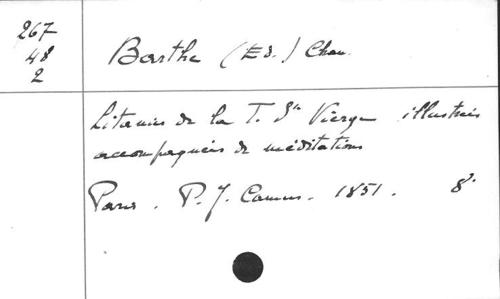 267
48
2
Barthe (Ed.) Chan.
Litanies de la T. Ste Vierge illustrées
accompagnées de méditations
Paris. P. J. Camus. 1851. 8°